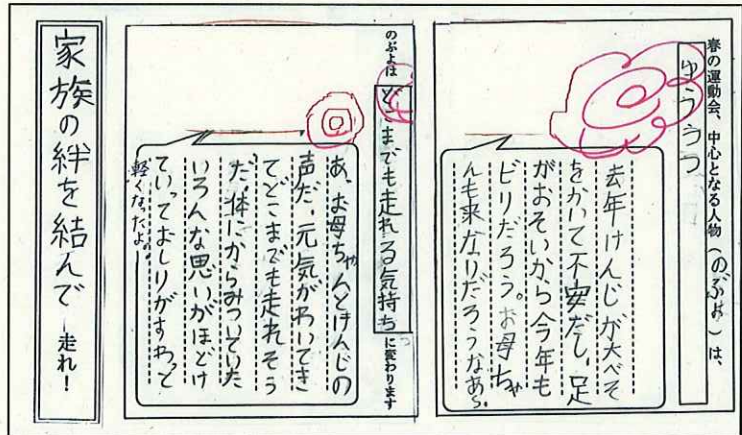 春の運動会、中心となる人物(のぶよ)は、
ゆううつ
去年けんじが大べそ
をかいて不安だし、足
がおそいから今年も
ビリだろう。お母ちゃ
んも来ないだろうなあ。
のぶよは
どこまでも走れる気持ち
に変わります
あ、お母ちゃんとけんじの
声だ。元気がわいてき
てどこまでも走れそう
だ。体にからみついていた
いろんな思いがほどけ
ていっておしりがすわっと
軽くなったよ。
家族の絆を結んで ―走れ!